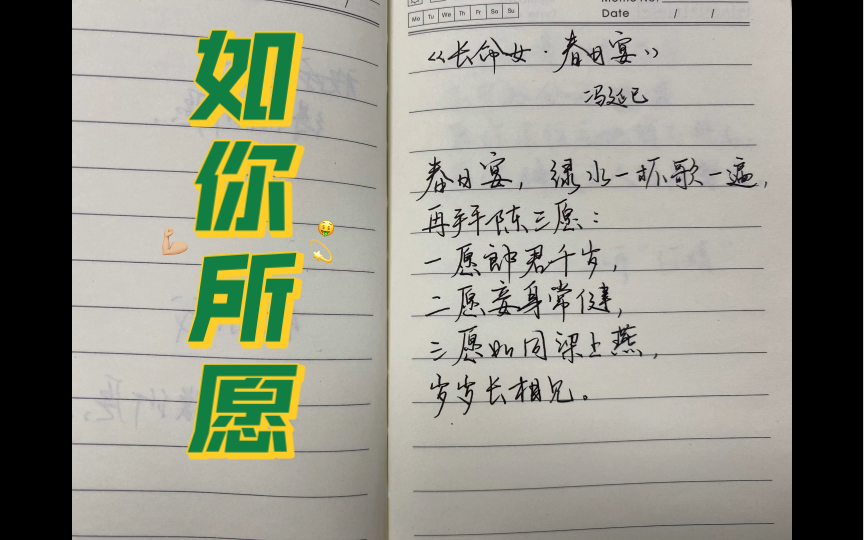 如你所愿
Mo Tu We Th Fr Sa Su
Memo No.
Date / /
《长命女·春日宴》
冯延巳
春日宴，绿水一杯歌一遍，
再拜陈三愿：
一愿郎君千岁，
二愿妾身常健，
三愿如同梁上燕，
岁岁长相见。